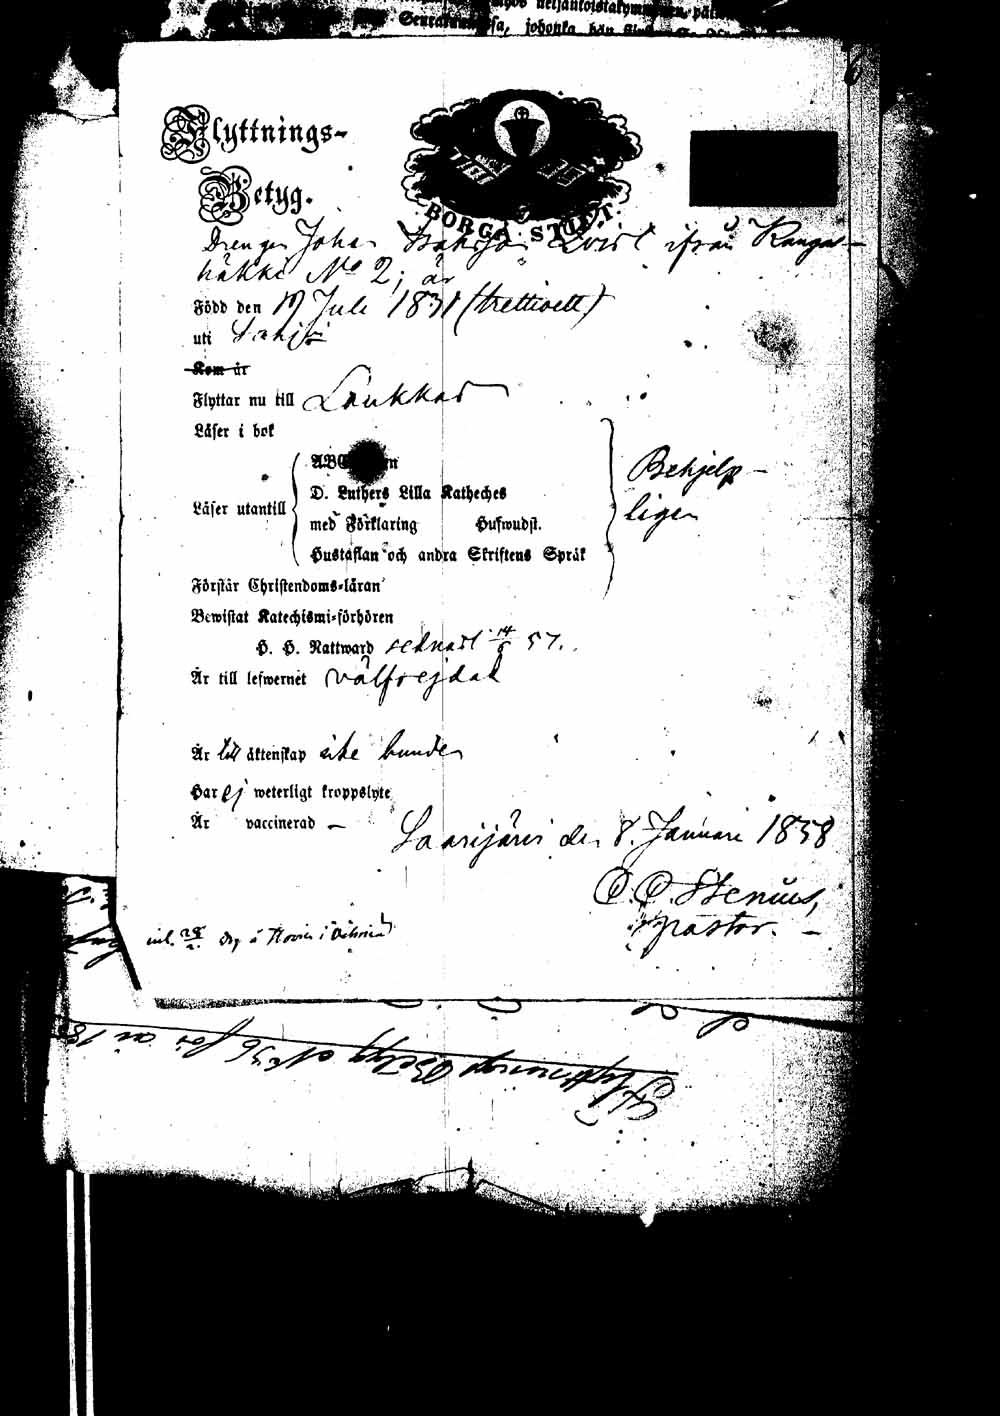 Seurakunnassa, johonka hän
6
Flyttnings-
Betyg.
BORGÅ STIFT.
Drengen Johan Isaksson Qvist ifrån Kangas-
häkki No 2; är
Född den 19 Juli 1831 (trettioett)
uti
Kom är
Flyttar nu till Laukkas
Läser i bok
ABC
D. Luthers Lilla Katheches
med Förklaring Hufwudst.
Läser utantill
Hustaflan och andra Skriftens Språk
Behjelp-
ligen
Förstår Christendoms-läran
Bewistat Katechismi-förhören
H. H. Nattward sednast 14/6 57.
Är till lefwernet välfrejdad
Är till äktenskap icke bunden
Har ej weterligt kroppslyte
Är vaccinerad –
Saarijärvi den 8. Januari 1858
C. C. Stenius,
Pastor.
inl. 28/2
Flyttnings Betyg No 36 för år 18